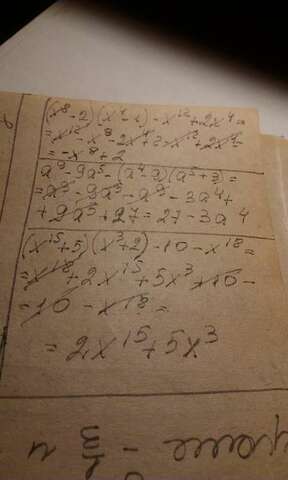 (x⁸-2)(x⁴-1)-x¹²+2x⁴=
=x¹²-x⁸-2x⁴+2-x¹²+2x⁴=
=-x⁸+2
a⁹-9a⁵-(a⁴-9)(a⁵+3)=
=a⁹-9a⁵-a⁹-3a⁴+
+9a⁵+27=27-3a⁴
(x¹⁵+5)(x³+2)-10-x¹⁸=
=x¹⁸+2x¹⁵+5x³+10-
-10-x¹⁸=
=2x¹⁵+5x³